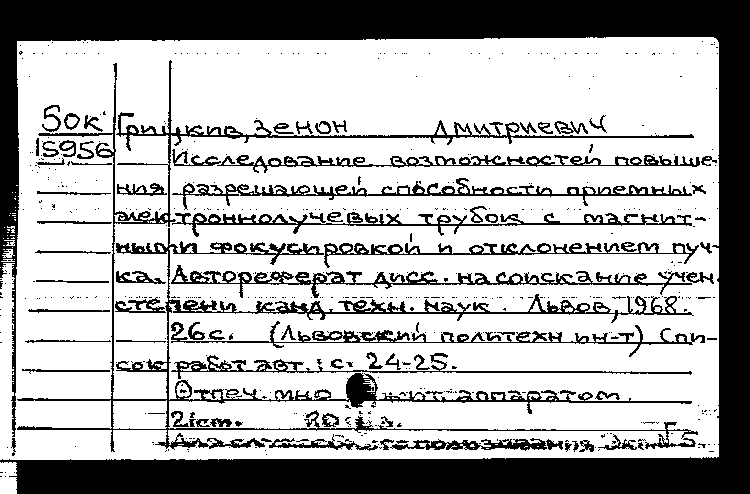 50к Грицкив, Зенон Дмитриевич
15956 Исследование возможностей повыше-
ния разрешающей способности приемных
электроннолучевых трубок с магнит-
ными фокусировкой и отклонением пуч-
ка. Автореферат дисс. на соискание учен.
степени канд. техн. наук. Львов, 1968.
26с. (Львовский политехн ин-т) Спи-
сок работ авт.: с. 24-25.
Отпеч. мно жит. аппаратом.
21см.
Для служебного пользования Экз. № 5.